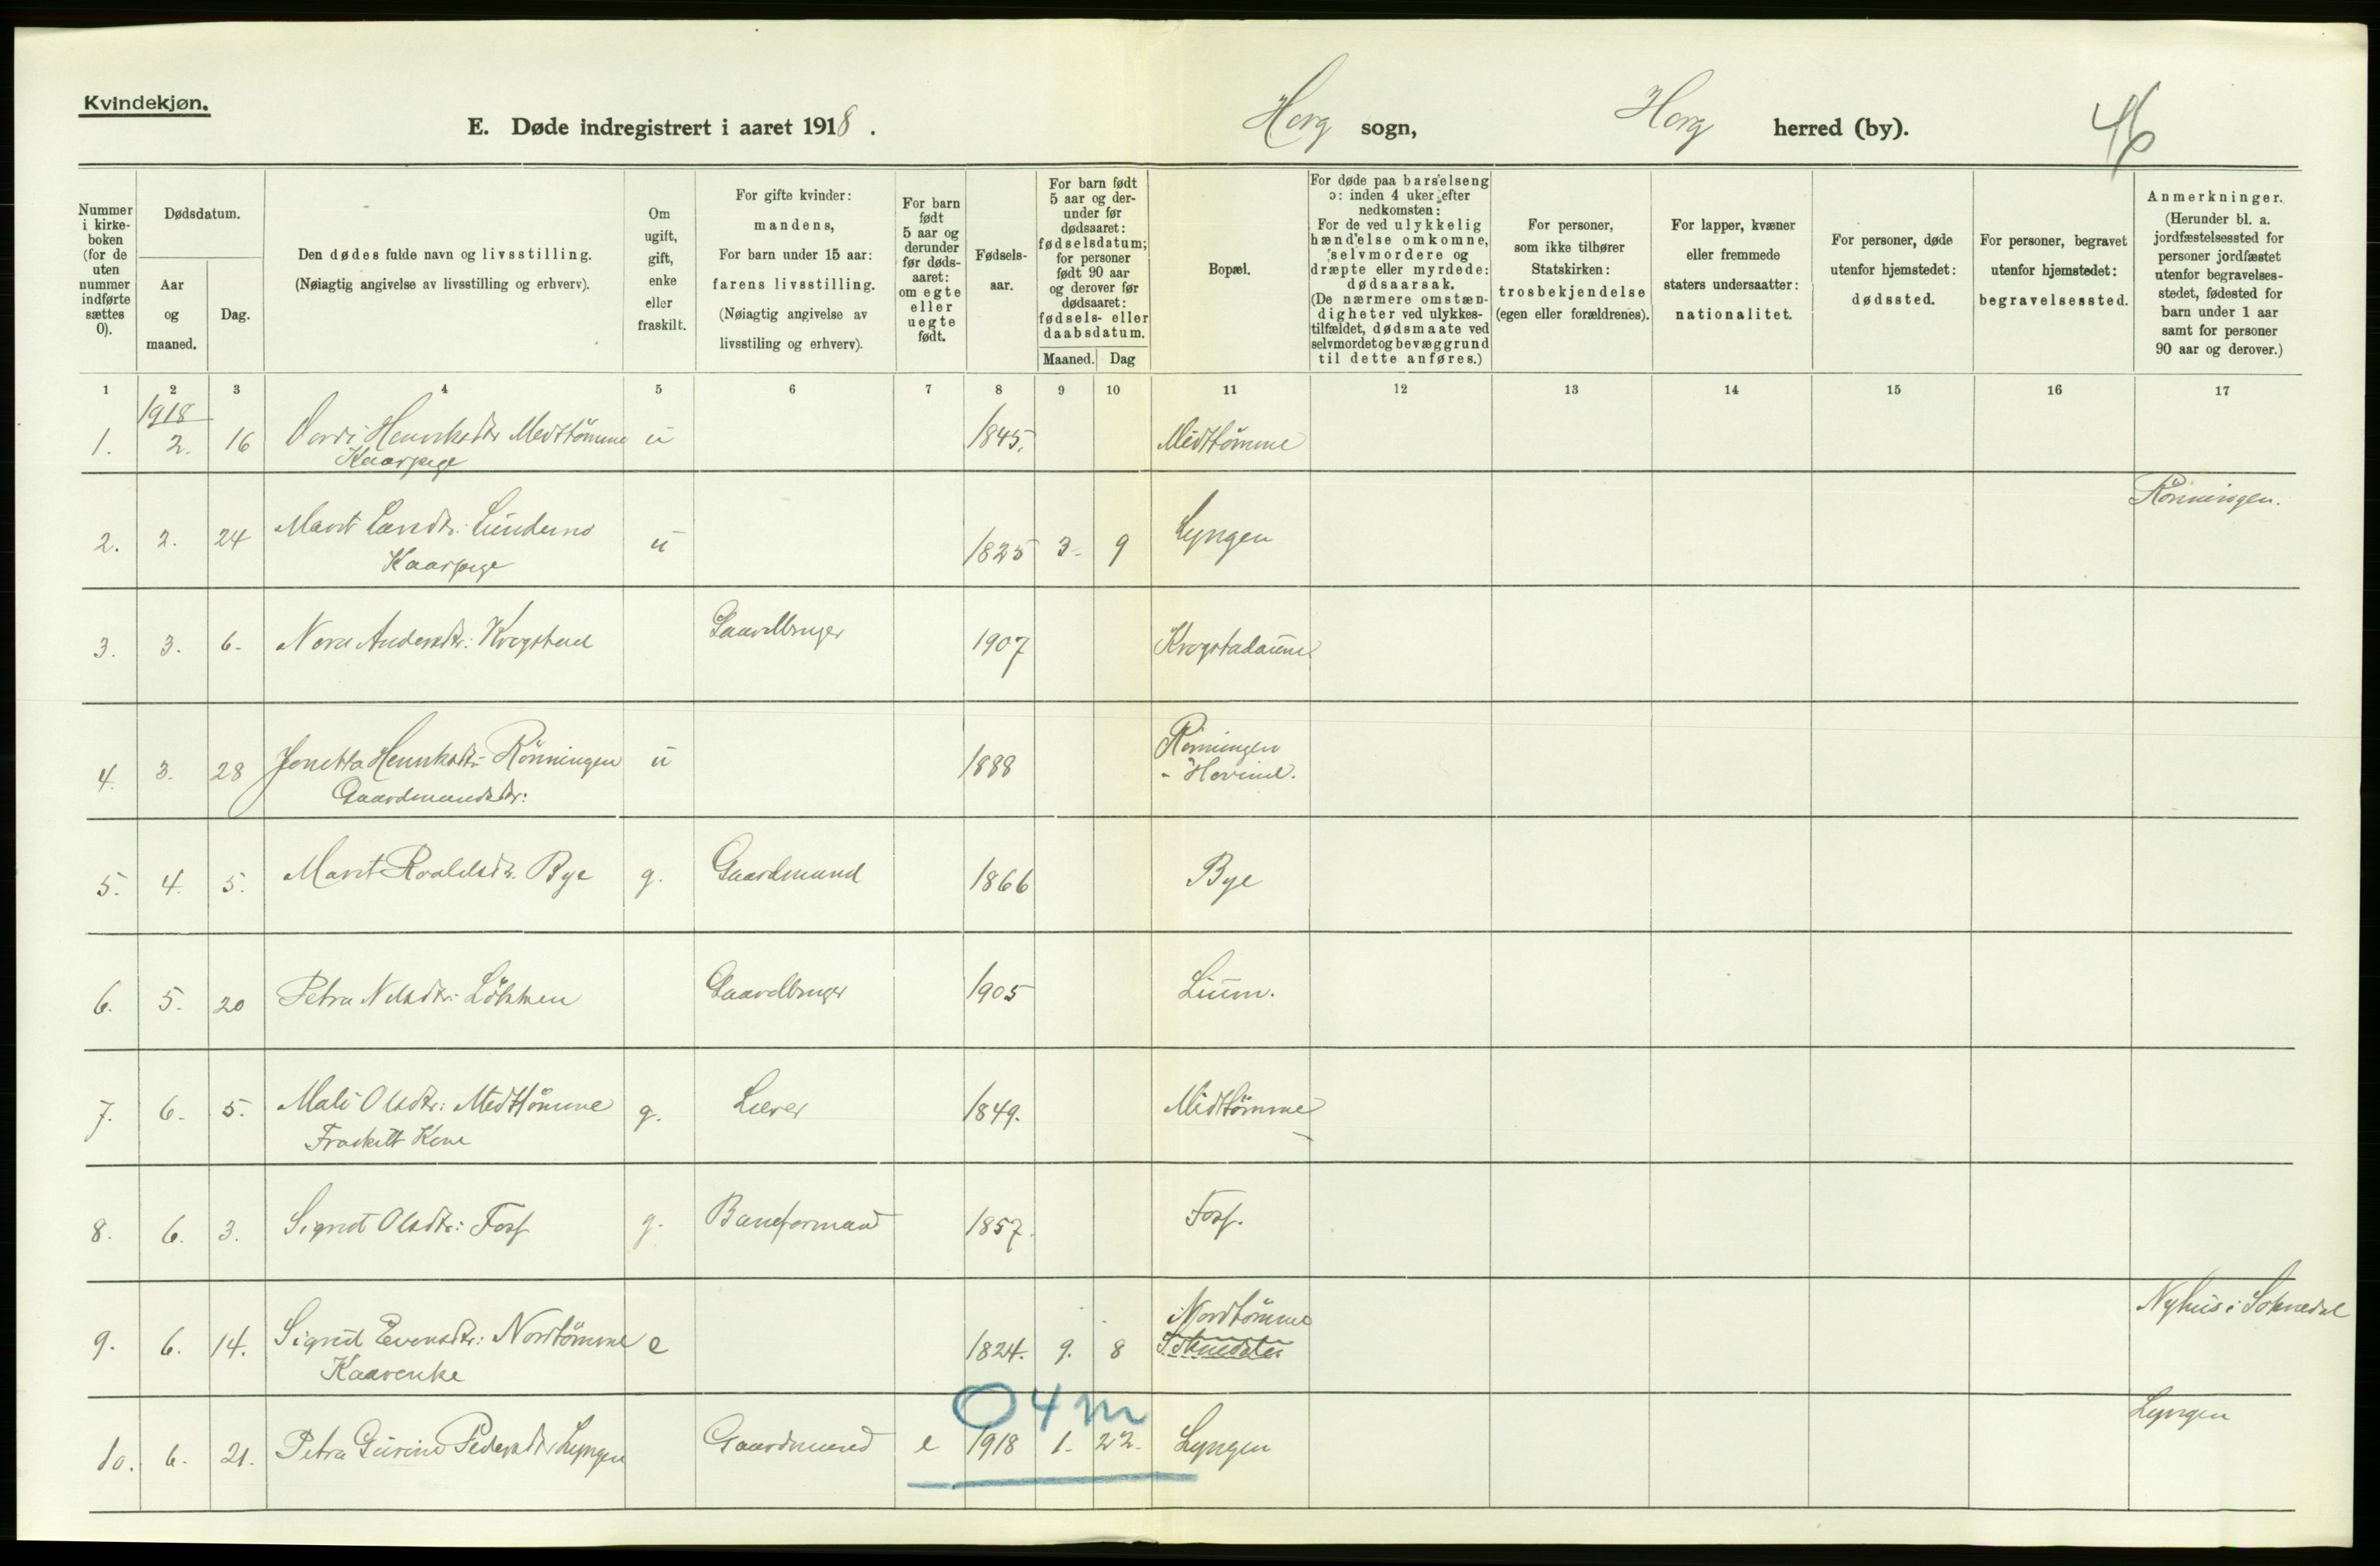 Kvindekjøn.
E. Døde indregistrert i aaret 1918.
Horg sogn,
Horg herred (by).
46
Nummer i kirke-
boken
(for de
uten
nummer
indførte
sættes
0).
Dødsdatum.
Aar
og
maaned.
Dag.
Den dødes fulde navn og livsstilling.
(Nøiagtig angivelse av livsstilling og erhverv).
Om
ugift,
gift,
enke
eller
fraskilt.
For gifte kvinder:
mandens,
For barn under 15 aar:
farens livsstilling.
(Nøiagtig angivelse av
livsstiling og erhverv).
For barn
født
5 aar og
derunder
før døds-
aaret:
om egte
eller
uegte
født.
Fødsels-
aar.
For barn født
5 aar og der-
under før
dødsaaret:
fødselsdatum;
for personer
født 90 aar
og derover før
dødsaaret:
fødsels- eller
daabsdatum.
Maaned. Dag
Bopæl.
For døde paa barselseng
ɔ: inden 4 uker efter
nedkomsten:
For de ved ulykkelig
hændelse omkomne,
selvmordere og
dræpte eller myrdede:
dødsaarsak.
(De nærmere omstæn-
digheter ved ulykkes-
tilfældet, dødsmaate ved
selvmordet og bevæggrund
til dette anføres.)
For personer,
som ikke tilhører
Statskirken:
trosbekjendelse
(egen eller forældrenes).
For lapper, kvæner
eller fremmede
staters undersaatter:
nationalitet.
For personer, døde
utenfor hjemstedet:
dødssted.
For personer, begravet
utenfor hjemstedet:
begravelsessted.
Anmerkninger.
(Herunder bl. a.
jordfæstelsessted for
personer jordfæstet
utenfor begravelses-
stedet, fødested for
barn under 1 aar
samt for personer
90 aar og derover.)
1 2 3 4 5 6 7 8 9 10 11 12 13 14 15 16 17
1918
1. 2. 16 Henriksdtr Medtömme u 1845. Midttömme
Kaarpige
Rönningen.
2. 2. 24 Marit Larsdtr: u 1825 3. 9 Lyngen
Kaarpige
3. 3. 6. Nora Andersdtr: Krogstad Gaardbruger 1907 Krogstadaune
4. 3. 28 Jonetta Henriksdtr: Rönningen u 1888 Rönningen
- Hovind.
Gaardmandsdtr:
5. 4. 5. Marit Roaldsdtr. Bye g. Gaardmand 1866 Bye
6. 5. 20 Petra Nilsdtr: Løkken Gaardbruger 1905 Lium.
7. 6. 5. Mali Olsdtr: Medttömme g. 1849. Midttömme
Fraskilt Kone
8. 6. 3. Sigrid Olsdtr: Foss g. Baneformand 1857. Foss.
Nordtömme
Nyhus i Soknedal
9. 6. 14. Sigrid Evensdtr: Nordtömme e 1824. 9. 8 Soknedalen
Kaarenke
0 4 m
Lyngen
10. 6. 21. Petra Gurine Pedersdtr Lyngen Gaardmand e 1918 1. 22. Lyngen